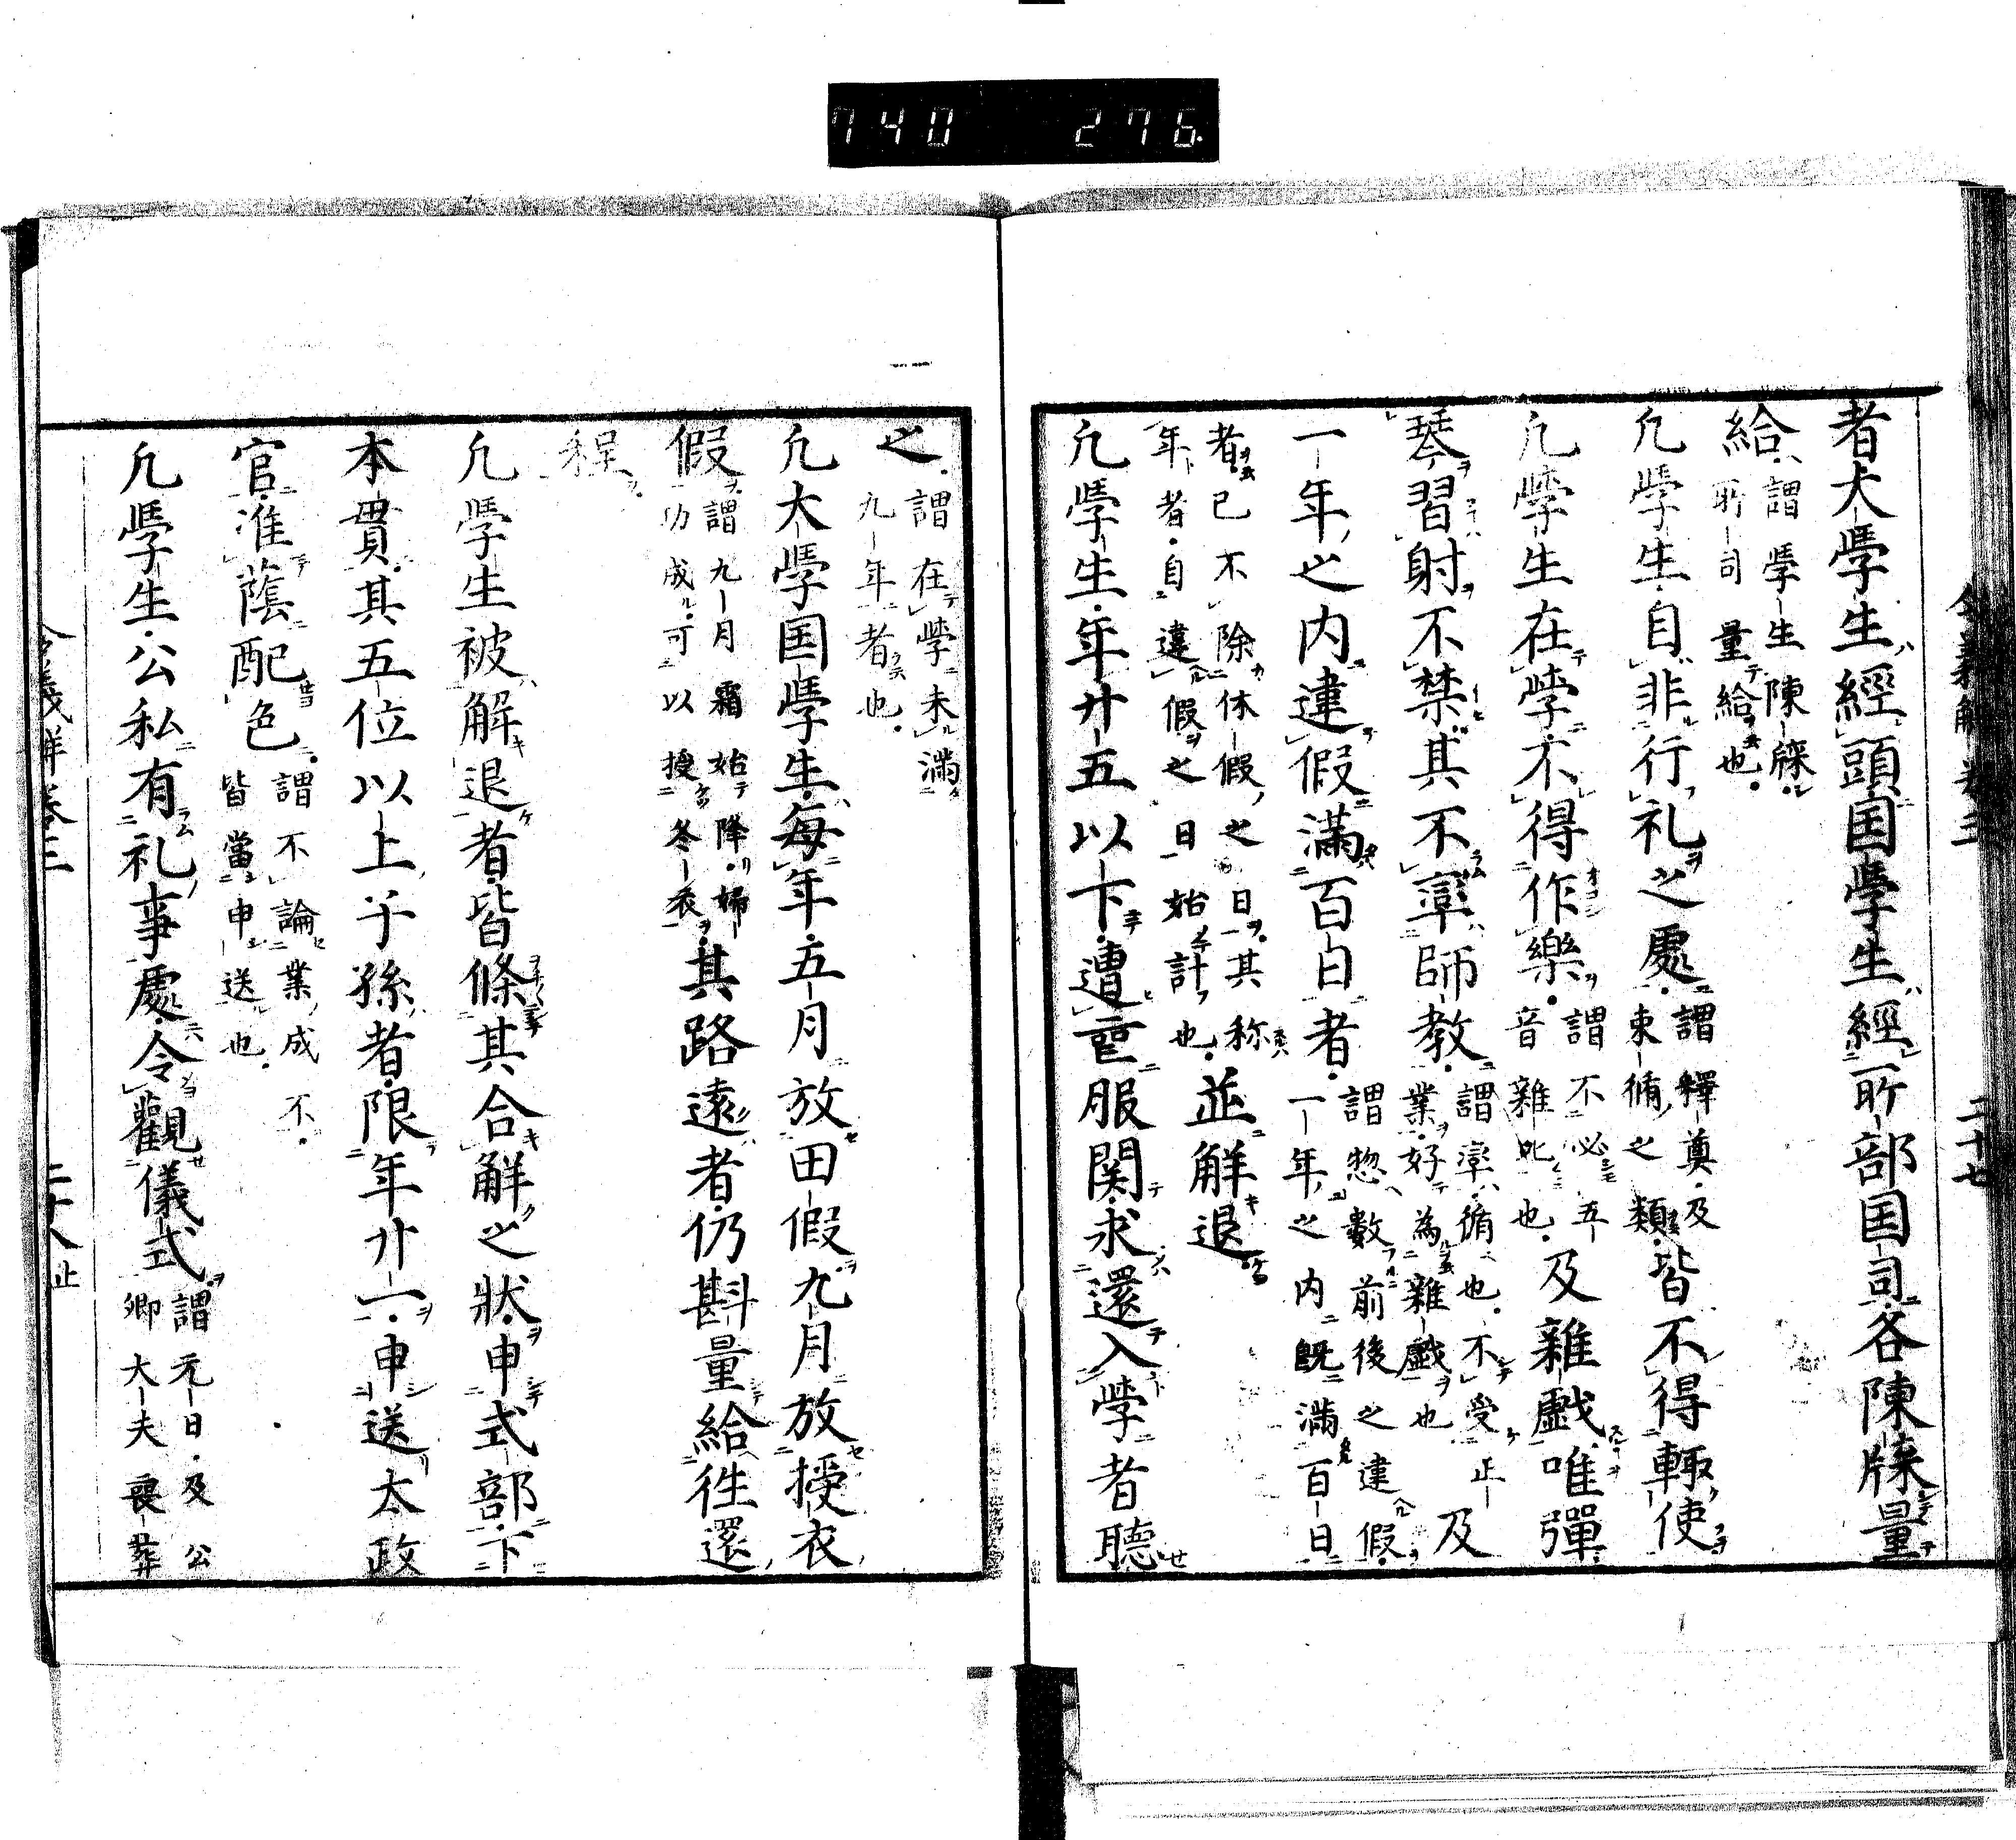 740 276
令義解 卷三 二十七
者大學生經頭国學生經所部国司各陳牒量
給謂學生陳牒
所司量給也
凢學生自非行礼之處謂釋奠及
束脩之類皆不得輙使
凢學生在學不得作樂謂不必五
音雜吡也及雜戲唯彈
琴習射不禁其不率師教謂率循也不受正
業好為雜戯也及
一年之内違假滿百日者謂惣數前後之違假
一年之内既滿百日
者已不除休假之日其称
年者自違假之日始計也並解退
凢學生年廿五以下遭喪服関求還入學者聴
之謂在學未滿
九年者也
凢大學国學生每年五月放田假九月放授衣
假謂九月霜始降婦
功成可以授冬衣其路遠者仍斟量給徃還
程
凢學生被解退者皆條其合解之状申式部下
本貫其五位以上子孫者限年廿一申送太政
官准蔭配色謂不論業成不
皆當申送也
凢學生公私有礼事處令觀儀式謂元日及公
卿大夫喪葬
令義解 卷三 二十八止